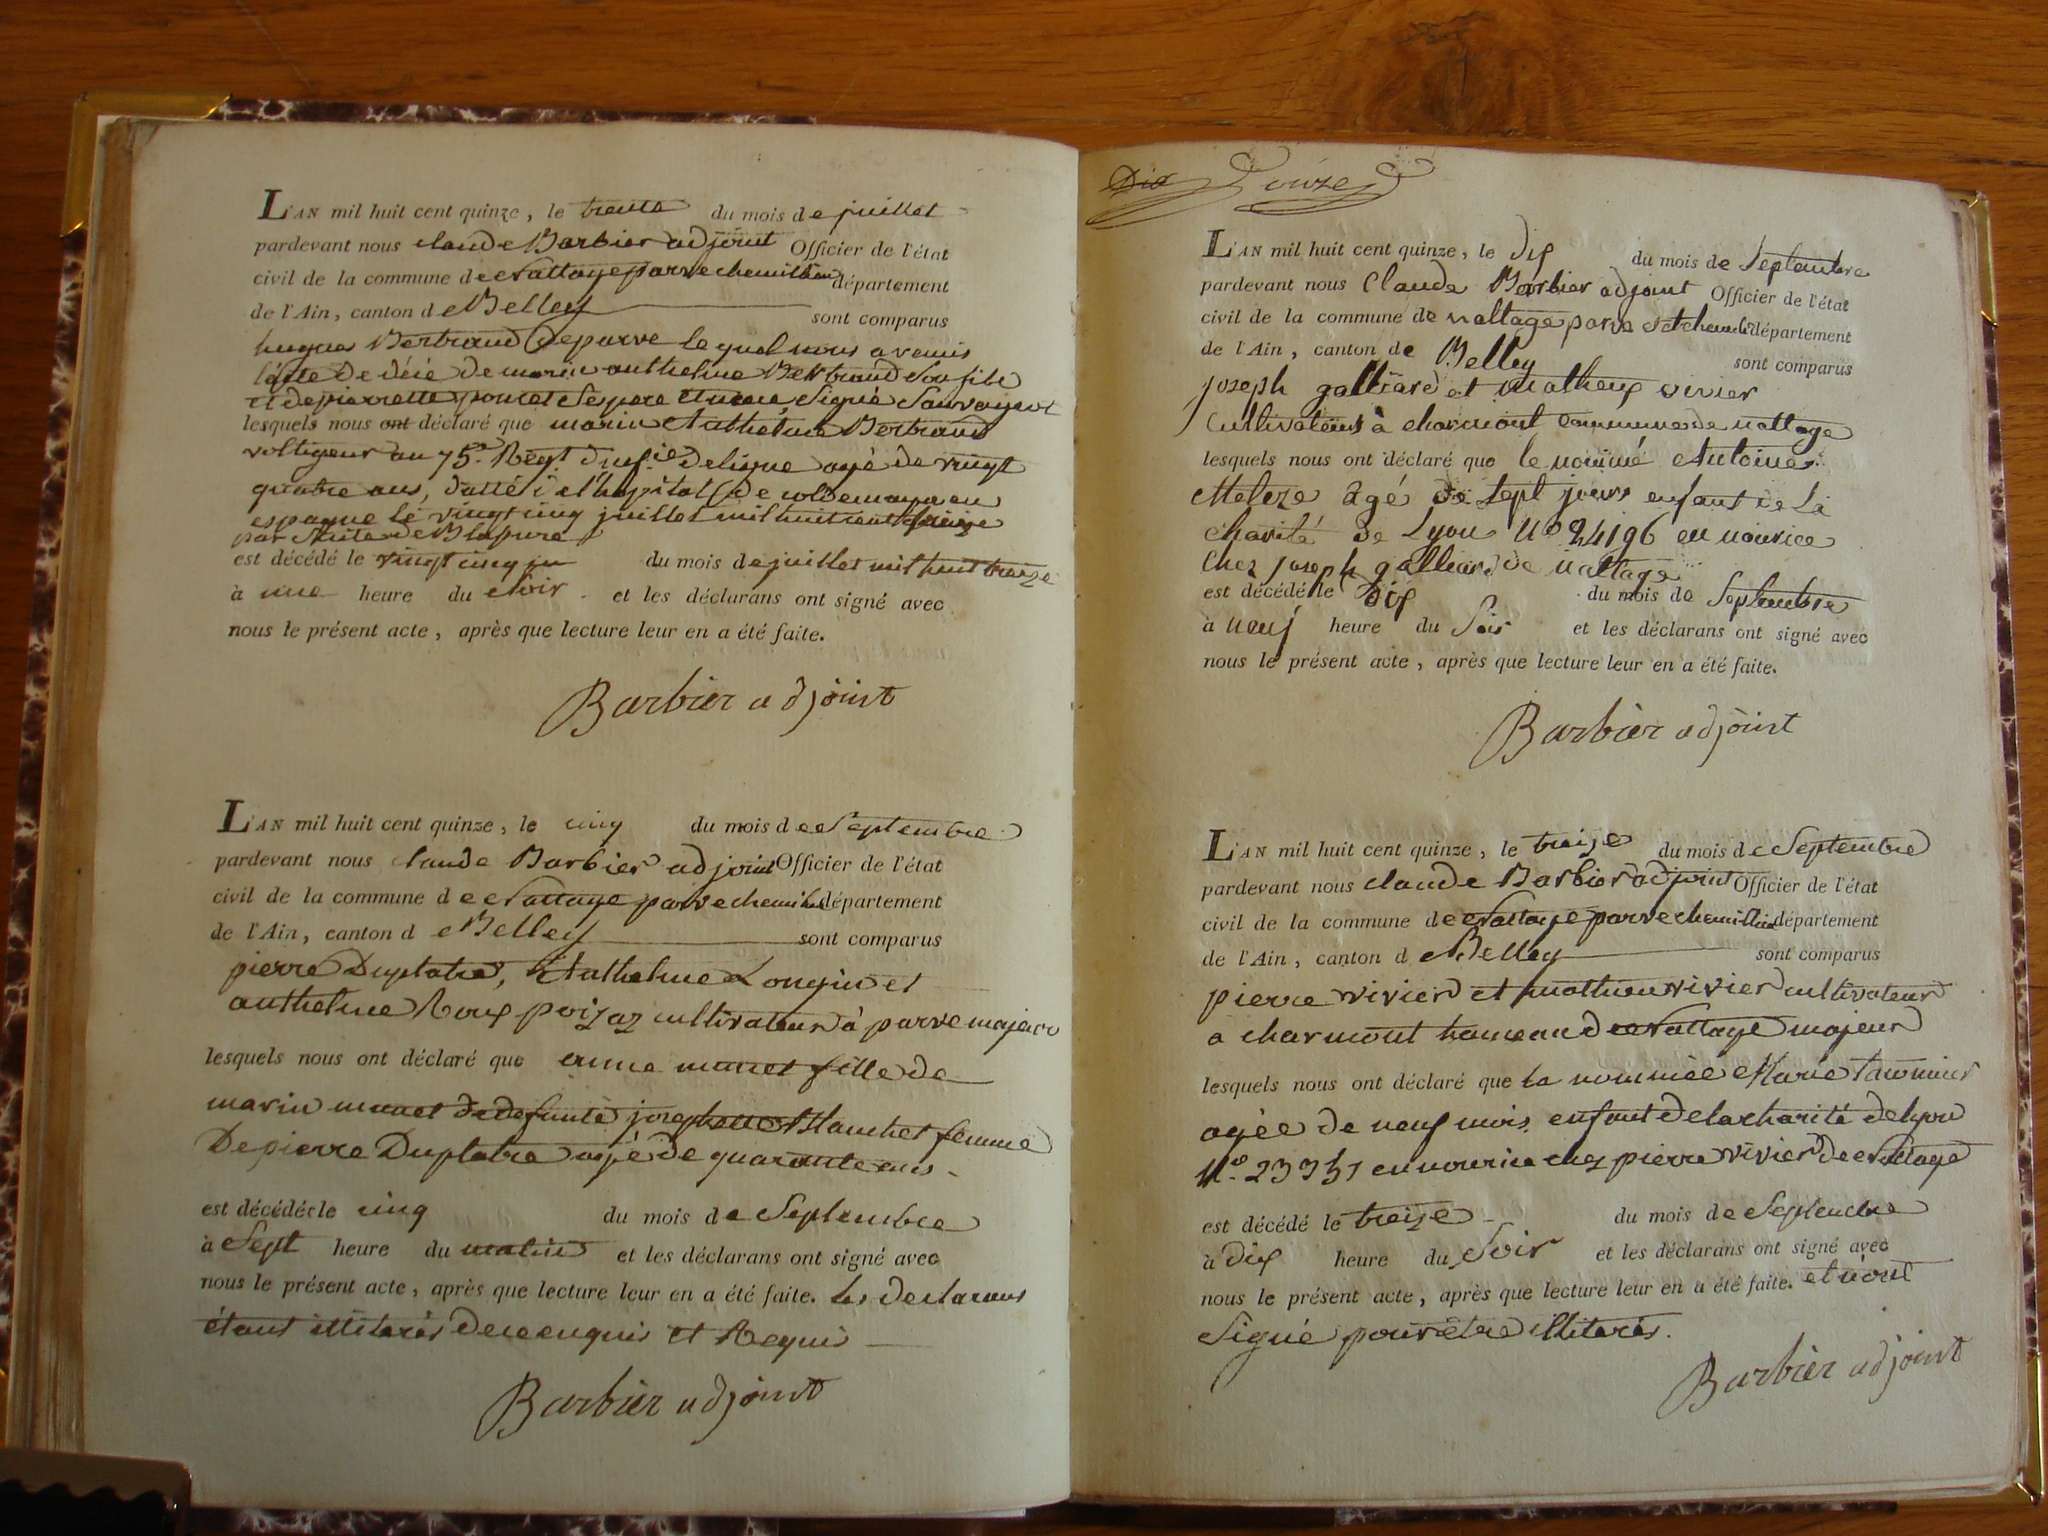 L'AN mil huit cent quinze, le trente du mois de juillet
pardevant nous claude Barbier adjoint Officier de l'état
civil de la commune de Nattage parve chemillieu département
de l'Ain, canton de Belley sont comparus
hugues Bertrand de parve lequel nous a remis
l'acte de décé de marin anthelme Bertrand Son fils
et de pierrette poncet Ses pere et mere, Signé
lesquels nous ont déclaré que marin Anthelme Bertrand
voltigeur au 75e Regt d'infie de ligne agé de vingt
quatre ans, datté de l'hopital de en
espagne le vingt cinq juillet mil huit cent treize
par Suite de Blesure
est décédé le vingt cinq du mois de juillet mil huit treize
à une heure du Soir et les déclarans ont signé avec
nous le présent acte, après que lecture leur en a été faite.
Barbier adjoint
L'AN mil huit cent quinze, le cinq du mois de Septembre
pardevant nous claude Barbier adjoint Officier de l'état
civil de la commune de Nattage parve chemillieu département
de l'Ain, canton de Belley sont comparus
pierre Duplatre, Anthelme Longin et
anthelme Roux poizaz cultivateur à parve majeur
lesquels nous ont déclaré que anne manet fille de
marin manet de defunte josephette Blanchet femme
De pierre Duplatre agé de quarante ans
est décédée le cinq du mois de Septembre
à Sept heure du matin et les déclarans ont signé avec
nous le présent acte, après que lecture leur en a été faite. les declarans
étant illiterés de ce enquis et Requis
Barbier adjoint
Dix Douze
L'AN mil huit cent quinze, le dix du mois de Septembre
pardevant nous Claude Barbier adjoint Officier de l'état
civil de la commune de nattage parve et chemile département
de l'Ain, canton de Belley sont comparus
joseph galliard et matheux vivier
Cultivateurs à charmont commune de nattage
lesquels nous ont déclaré que le nommé Antoine
Meleze agé de Sept jours enfant de la
charité de Lyon No 24196 en nourice
chez joseph galliard de nattage
est décédé le Dix du mois de Septembre
à neuf heure du Soir et les déclarans ont signé avec
nous le présent acte, après que lecture leur en a été faite.
Barbier adjoint
L'AN mil huit cent quinze, le treize du mois de Septembre
pardevant nous claude Barbier adjoint Officier de l'état
civil de la commune de Nattage parve chemillieu département
de l'Ain, canton de Belley sont comparus
pierre vivier et mathieu vivier cultivateur
a charmont hameau de Nattage majeur
lesquels nous ont déclaré que la nommée Marie
agée de neuf mois enfant de la charité de lyon
No. en nourice chez pierre vivier de Nattage
est décédé le treize du mois de Septembre
à dix heure du Soir et les déclarans ont signé avec
nous le présent acte, après que lecture leur en a été faite. et n'ont
Signé pour être illiterés.
Barbier adjoint